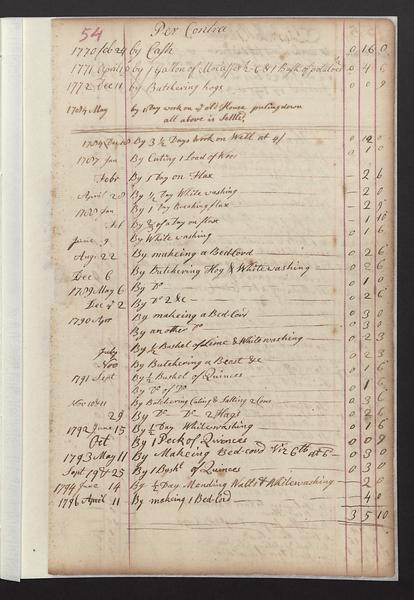 54 Per Contra
1770 feb 24 by Cash 0 16 0
1771 April 10 by 1 Gallon of & 1 Bush of potatoes 0 4 6
1772 Dec 11 by Butchering hogs 0 0 9
1784 May by 1 Day work on ye old House puling down
all above is Settled
1784 By 3 1/2 Days Work on Wall at 4/ 0 12 0
1787 Jan By Cuting 1 Load of Wood 0 1 0
Febr By 1 Day on Flax 2 6
April 28 By 1/2 Day White washing 2 0
1788 Jan By 1 Day Breaking flax 2 9
By of a Day on flax 1 10
June 9 By White washing 0 1 6
Aug. 22 By makeing a Bedcord 0 2 6
Dec 6 By Butchering Hog & Whitewashing 0 2 6
1789 May 6 By Do 0 1 0
Dec ye 2 By Do 2 &c 0 2 6
1790 Apr By makeing a Bed Cord 0 3 0
By another Do 0 3 0
July By 1/2 Bushel of Lime & Whitewashing 0 2 3
Nov By Butchering a Beast &c 0 2 3
1791 Sept By 1/2 Bushel of Quinces 0 1 6
By Do of Do 0 1 6
Nov 10 & 11 By Butchering Cuting & Salting 2 Cows 0 3 6
29 By Do Do 2 Hogs 0 2 6
1792 June 15 By 1/2 Day Whitewashing 0 1 6
Oct By 1 Peck of Quinces 0 0 9
1793 May 11 By Makeing Bed-cord Wt 6 lb at 6 0 3 0
Sept 19 & 25 By 1 Bushl of Quinces 0 3 0
1794 June 14 By 1/2 Day Mending Walls & Whitewashing 2 0
1796 April 11 By makeing 1 Bed-Cord 4 0
3 5 10